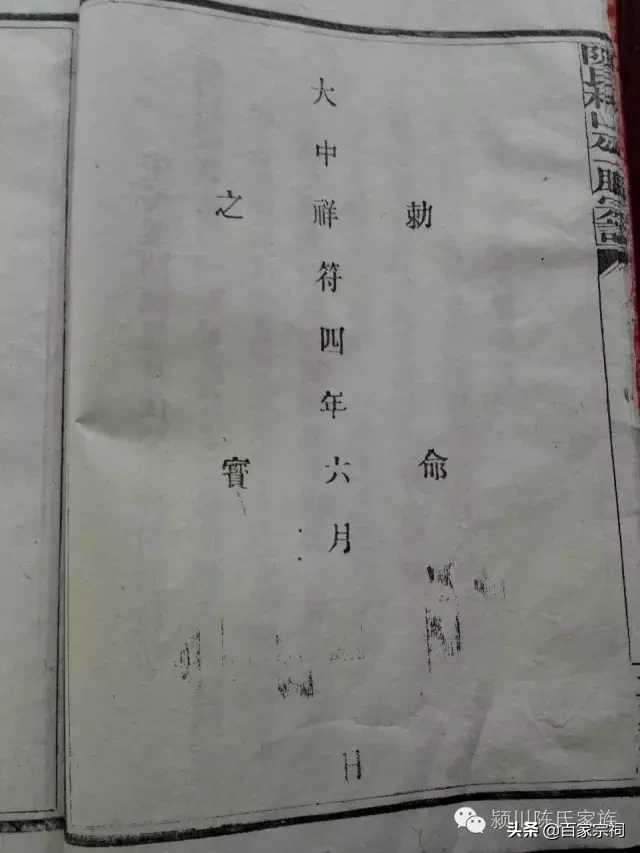 勅命
大中祥符四年六月 日
之寳
颍川陈氏家族
头条 @百家宗祠